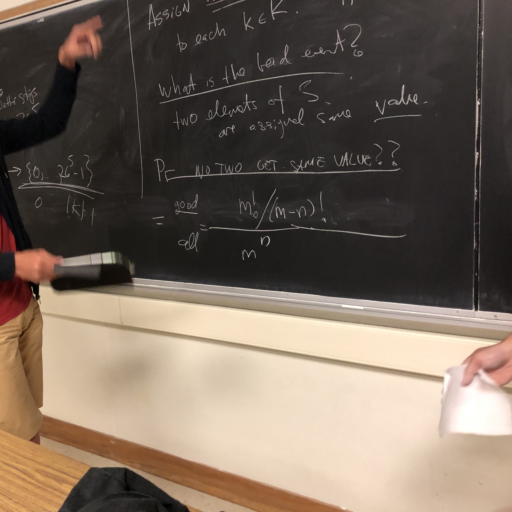 ASSIGN
to each k ∈ K.
What is the bad event?
two elements of S.
are assigned same value.
Pr NO TWO GET SAME VALUE??
= good/all = m!/(m-n)! / m^n
→ {0,
0